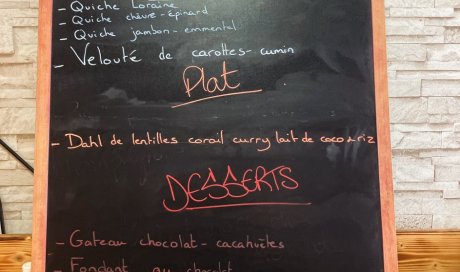 - Quiche Lorraine
- Quiche chèvre-épinard
- Quiche jambon-emmental
- Velouté de carottes-cumin
Plat
- Dahl de lentilles corail curry lait de coco & riz
DESSERTS
- Gateau chocolat-cacahuètes
- Fondant au chocolat